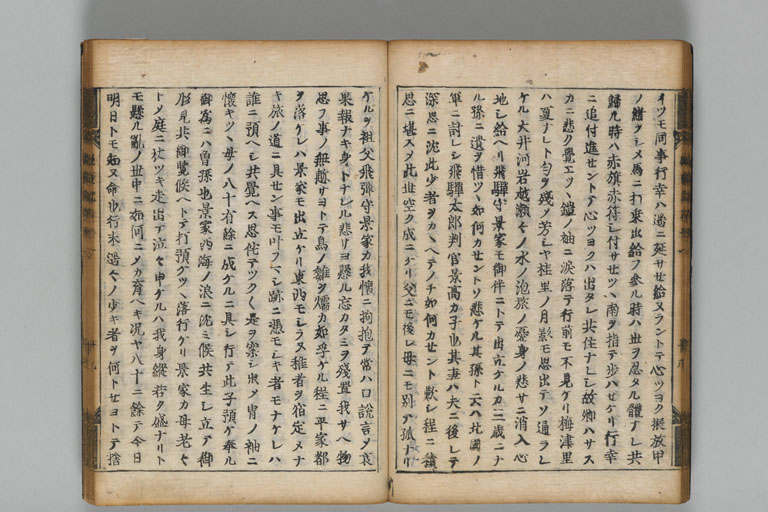 イツモ同事行幸ハ遥ニ延サセ給ヌラントテ心ツヨク振放甲
ノ緒ヲシメ馬ニ打乗出給フ参ル時ハ世ヲ忍タル體ナレ共
歸ル時ハ赤旗赤符シ付サセツヽ南ヲ指テ歩ハセケリ行幸
ニ追付進セントテ心ツヨクハ出タレ共住ナレシ故郷ハサス
カニ悲ク覺エツヽ鎧ノ袖ニ涙落テ行前モ不見ケリ梅津里
ハ夏ナレト匂ヲ殘ノ芳シヤ桂里ノ月影モ思出テソ通ラレ
ケル大井河岩越瀬々ノ水ノ泡旅ノ憂身ノ悲サニ消入心
地シ給ヘリ飛騨守景家モ御伴ニトテ出立ケルカ三歳ニナ
ル孫ニ遺ヲ惜ツヽ如何カセントソ悲ケル其孫ト云ハ北國ノ
軍ニ討レシ飛騨太郎判官景高カ子也其妻ハ夫ニ後レテ
深思ニ沈此少者ヲカヽヘテノチ如何カセント歎シ程ニ
思ニ堪スヲ此世空ク成ニケリ父ニモ後レ母ニモ別テ孤ナリ
ケルヲ祖父飛騨守景家カ我懷ニ拘抱テ常ハ口説言ヲ哀
果報ナキ身トナレル悲サヨ懸ル忘カタミヲ殘置我サヘ物
思フ事ノ無慙サヨトテ鳥ノ雛ヲ燸カ如孚ケル程ニ平家都
ヲ落ケレハ景家モ出立ケリ東西モシラヌ稚者ヲ宿定メナ
キ旅ノ道ニ具セン事モ叶フマシ跡ニ憑モシキ者モナケレハ
誰ニ預ヘシ共覺ヘス思侘テツクく是ヲ案シ出メ冑ノ袖ニ
懷キツヽ母ノ八十有餘ニ成ケルニ具シ行テ此子預ケ奉ル
御為ニハ曽孫也景家西海ノ浪ニ沈ミ候共生シ立テ御
形見共御覽候ヘトテ打預ケツヽ落行ケリ景家カ母老々
トメ庭ニ杖ツキ走出テ泣々申ケルハ我身縦若ク盛ナリト
モ懸ル亂ノ世中ニ如何ニメカ育ヘキ況ヤ八十ニ餘テ今日
明日トモ知ヌ命也行末遥々ノ少キ者ヲ何トセヨトテ捨